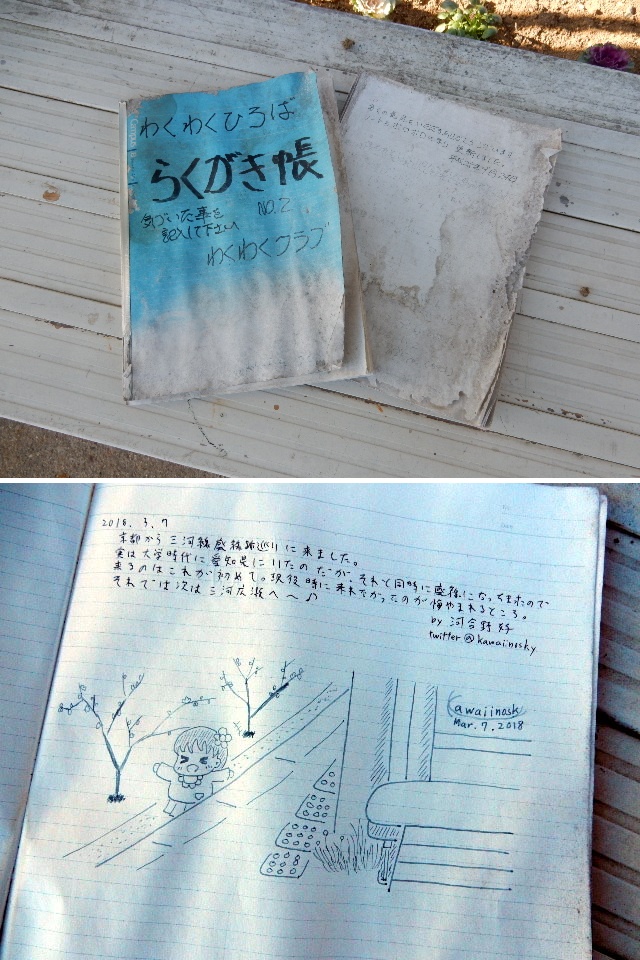 わくわくひろば
らくがき帳
気づいた事を
NO.2
記入して下さい
わくわくクラブ
2018.3.7
京都から三河線廃線跡巡りに来ました。
実は大学時代に愛知県にいたのだが、それと同時に廃線になっちまたので
来るのはこれが初めて。現役時に来れなかったのが悔やまれるところ。
それでは次は三河広瀬へ~♪
by 河合野
twitter@kawaiinosky
Kawaiinosk
Mar.7.2018